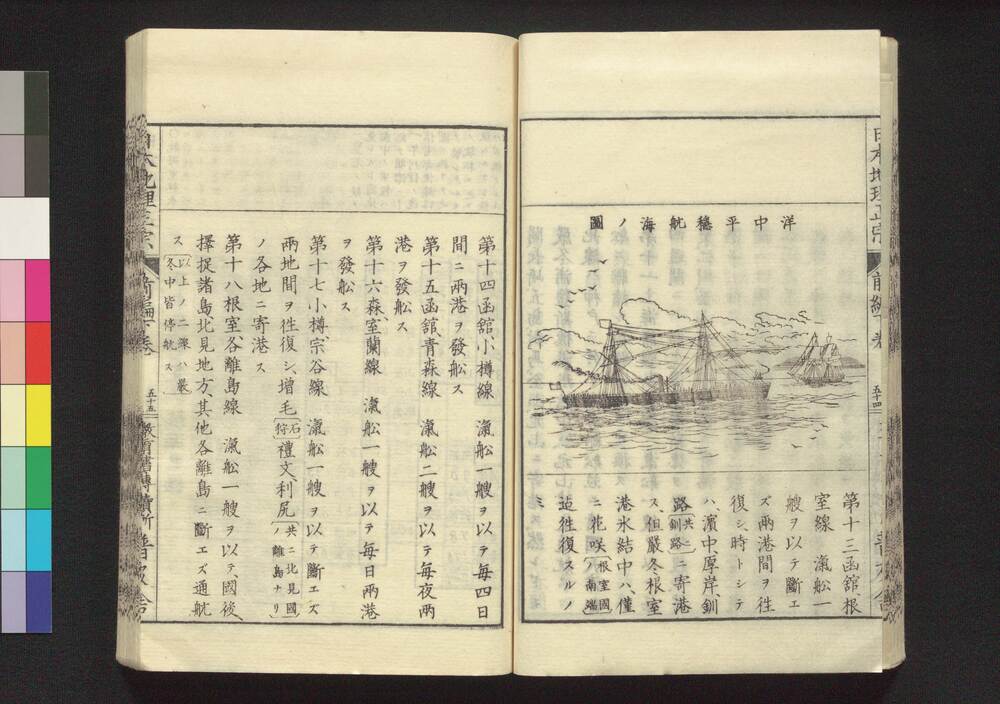 日本地理正宗
前編下卷
五十四
洋中平穩航海ノ圖
第十三函舘、根
室線　滊舩一
艘ヲ以テ斷エ
ズ兩港間ヲ徃
復シ、時トシテ
ハ、濱中、厚岸、釧
路〔共ニ釧路〕ニ寄港
ス、但嚴冬根室
港氷結中ハ、僅
ニ花咲〔根室國ノ南端〕
迄徃復スルノ
ミ
第十四函舘、小樽線　滊舩一艘ヲ以テ毎四日
間ニ兩港ヲ發舩ス
第十五函舘、青森線　滊舩二艘ヲ以テ毎夜兩
港ヲ發舩ス
第十六森、室蘭線　滊舩一艘ヲ以テ毎日兩港
ヲ發舩ス
第十七小樽、宗谷線　滊舩一艘ヲ以テ斷エズ
兩地間ヲ徃復シ、増毛〔石狩〕禮文、利尻〔共ニ北見國ノ離島ナリ〕
ノ各地ニ寄港ス
第十八根室、各離島線　滊舩一艘ヲ以テ、國後、
擇捉諸島、北見地方、其他各離島ニ斷エズ通航
ス〔以上ノ二線ハ嚴冬中皆停航ス〕
日本地理正宗
前編下卷
五十五